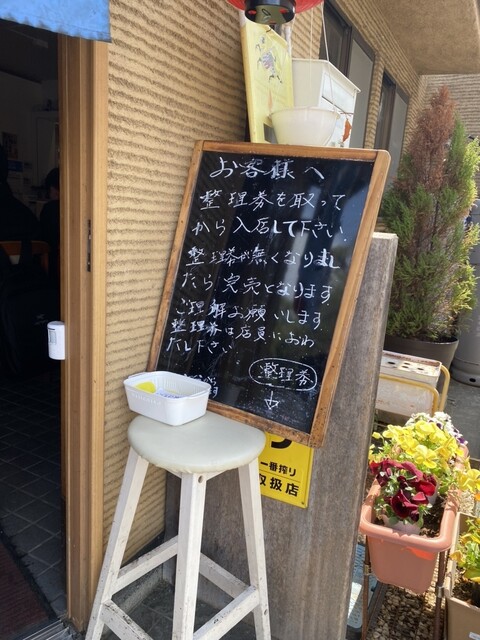 お客様へ
整理券を取って
から入店して下さい。
整理券が無くなりまし
たら完売となります
ご理解お願いします
整理券は店員におわ
たし下さい
整理券
↓
一番搾り
取扱店